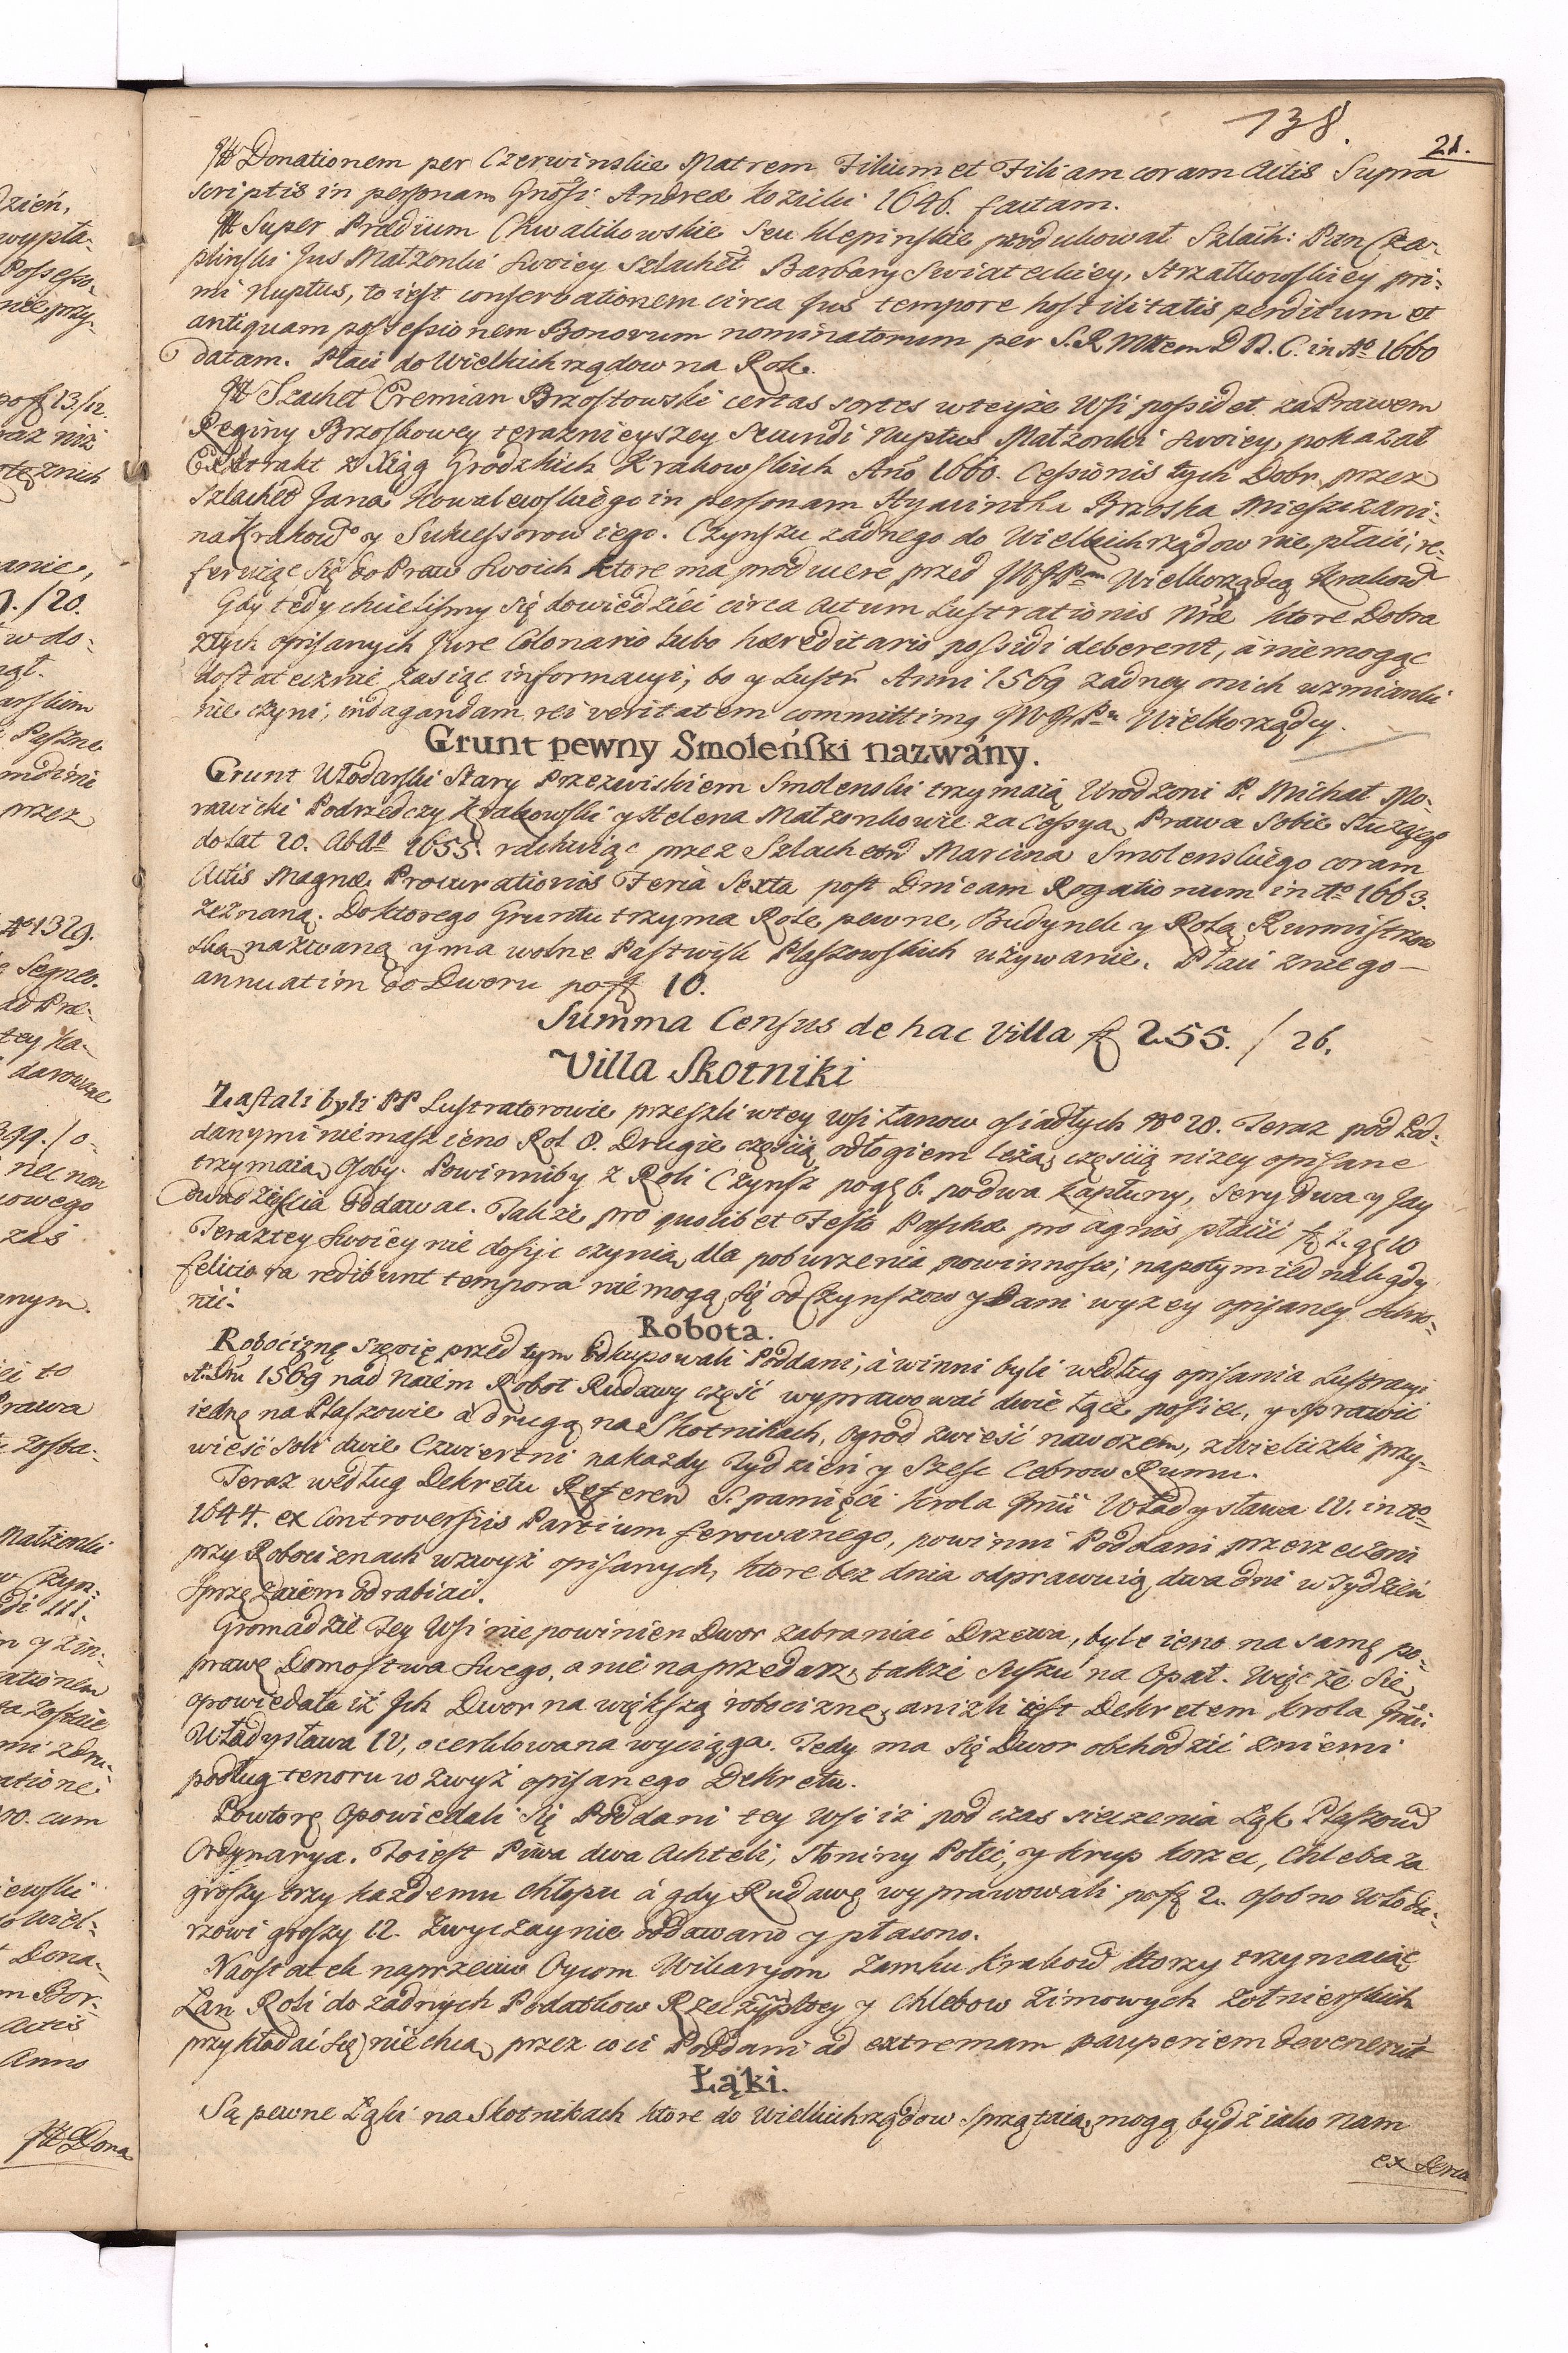 138.
21.
Itt Donationem per Czerwinskie Matrem Filium et Filiam coram Actis Supra
scriptis in personam Gnosi Andreæ Łozicki 1646. factam.
Itt Super Prædium Chwalikowskie Seu Klepinskie produkował Szlach: Pan Cza-
plinski Jus Małzonki swoiey szlachet Barbary Swiateckiey, Strzałkowskiey pri-
mi Nuptus, to iest conservationem circa Jus tempore hostilitatis perditum et
antiquam possessionem Bonorum nominatorum per S. R. Mttem D N. C. in Ao 1660
datam. Płaci do Wielkichrządow na Rok.
Itt Szachet Eremian Brzostowski certas sortes wteyże Wsi possidet zaPrawem
Reginy Brzoskowey teraznieyszey Secundi Nuptus Małzonki swoiey, pokazał
Extrakt z Xiąg Grodzkich Krakowskich Ano 1660. Cessionis tych Dobr przez
szlachet Jana Kowalewskiego in personam Hyacintha Brzoska Mieszczani-
na Krakowo y Sukcessorow iego. Czynszu żadnego do Wielkichrządow nie płaci, re-
feruiąc się do Praw swoich ktore ma producere przed JMP Pan Wielkorządcą Krakow
Gdy tedy chcielismy się dowiedzieć circa Actum Lustrationis Nræ ktore Dobra
ztych opisanych Jure Colonario lubo hæreditario possidi deberent, á niemogąc
dostatecznie zasiąc informacyi, bo y Lustr Anni 1569 żadney onich wzmianki
nie czyni, indagandam rei veritatem committimus JMP Pn Wielkorządcy.
Grunt pewny Smoleński nazwány.
Grunt Włodarski Stary Przezwiskiem Smolenski trzymaią Urodzoni P. Michał Mo-
rawicki Podrzędczy Krakowski y Helena Małzonkowie za Cessyą Prawa Sobie Służącego
do Lat 20. Ab Ao 1655. rachuiąc przez Szlachetn Marcina Smolenskiego coram
Actis Magnæ Procurationis Feria Sexta post Dnicam Rogationum in Ao 1663.
zeznaną. Doktorego Gruntu trzyma Role pewne, Budynek y Rolą Rurmistrzow
ską nazwaną y ma wolne Pastwisk Płaszowskich używanie. Płaci zniego –
annuatim do Dworu po fl 10.
Summa Census de hac Villa fl 255. / 26.
Villa Skotniki
Zastali byli PP Lustratorowie przeszli wtey Wsi Łanow osiadłych No 28. Teraz pod Pod-
danymi niemasz ieno Rol 8. Drugie częścią odłogiem leżą, częścią niżey opisane
trzymaią Osoby. Powinniby z Roli Czynsz po gę 6. po dwa Kapłuny, Sery dwa y Jay
dwadzieścia oddawac. Także pro quolibet Festo Paschæ pro agnis płacić fl 2. gę 10
Teraz tey swoiey nie dosyć czynią dla poburzenia powinności, napotym iednak gdy
feliciora redibunt tempora niemogą się od Czynszow y Dani wyżey opisaney schro-
nić.
Robota.
Robociznę szewię przed tym odkupowali Poddani, á winni byli według opisania Lustracyi
A. Dni 1569 nad naiem Robot Rudawy część wyprawować dwie Łące posiec, y sprawić
iednę na Płaszowie á drugą na Skotnikach, Ogrod zwieść nawozem, z Wieliczki przy-
wieść Soli dwie Czwiertni na każdy Tydzień y Szesc Cebrow Rumu.
Teraz według Dekretu Referen S. pamięci Krola Jmci Władysława IV. in Ao
1644. ex Controversiis Partium ferowanego, powinni Poddani przerzeczoni
przy Robociznach wzwyż opisanych, ktore bez dnia odprawuią, dwa dni w Tydzień
sprzężaiem odrabiać.
Gromadzie Tey Wsi niepowinien Dwor zabraniać Drzewa, byle ieno na samę po-
prawę Domostwa swego, a nie naprzedarz, także suszu na Opał. Węc że się
opowiedała iż Jch Dwor na większą robociznę, anizli iest Dekretem Krola Jmci
Władysława IV, ocerklowana wyciąga. Tedy ma się Dwor obchodzić zniemi
podług tenoru wzwyż opisanego Dekretu.
Powtorę Opowiedali się Poddani tey Wsi iż podczas sieczenia Łąk Płaszow
Ordynarya. To iest Piwa dwa Achteli, Słoniny Połeć, y Krup korzec, Chleba za
groszy trzy każdemu chłopu á gdy Rudawę wyprawowali po fl 2. Osobno Włoda-
rzowi groszy 12. Zwyczaynie oddawano y płacono.
Naostatek naprzeciw Oycom Wikaryom Zamku Krakow ktorzy trzymaiąc
Łan Roli do żadnych Podatkow Rzeczyptey y Chlebow Zimowych Żołnierskich
przykładać się niechcą, przez co ci Poddani ad extremam pauperiem devenerut
Łąki.
Są pewne Łąki na Skotnikach ktore do Wielkichrządow sprzątaią, mogą bydź iako nam
ex Seru